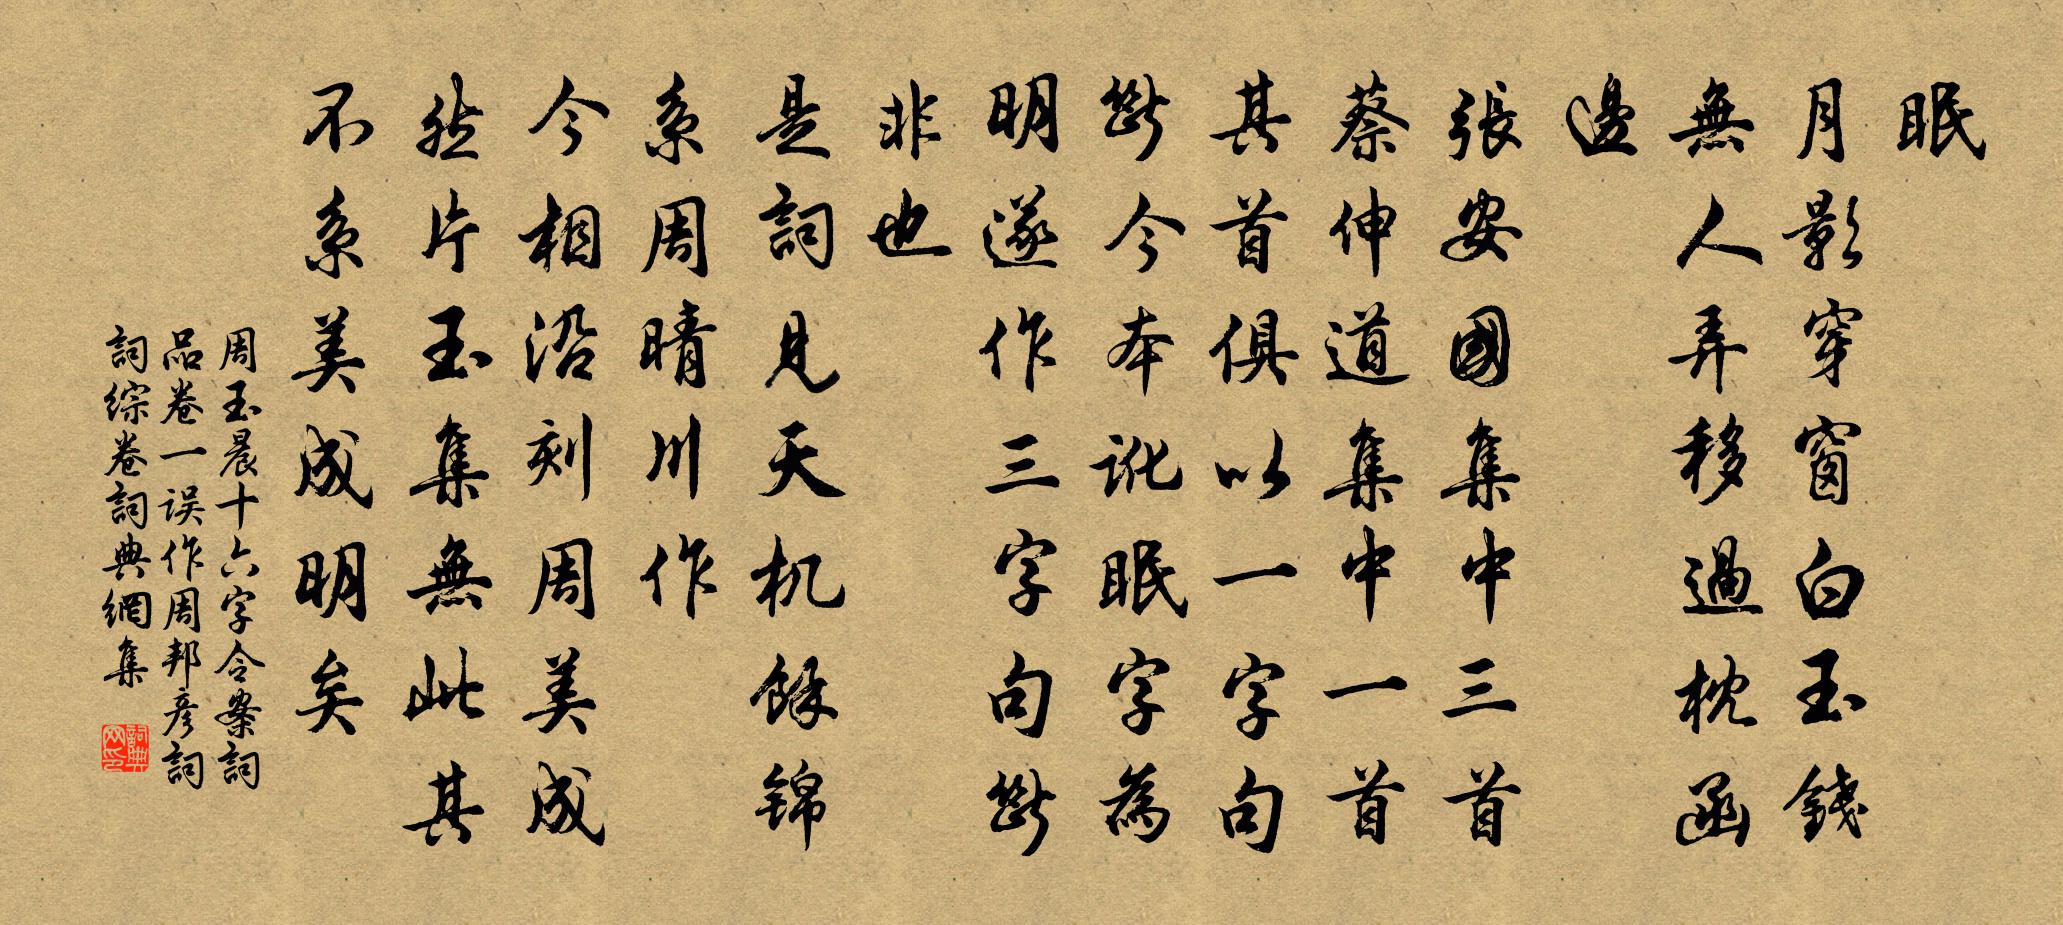 眠
月影穿窗白玉錢
無人弄移過枕函
邊
張安國集中三首
蔡伸道集中一首
其首俱以一字句
斷今本讹眠字為
明遂作三字句斷
非也
是詞見天机餘锦
系周晴川作
今相沿刻周美成
然片玉集無此其
不系美成明矣
周玉晨十六字令案詞
品卷一误作周邦彦詞
詞综卷詞典網集
詞典网印